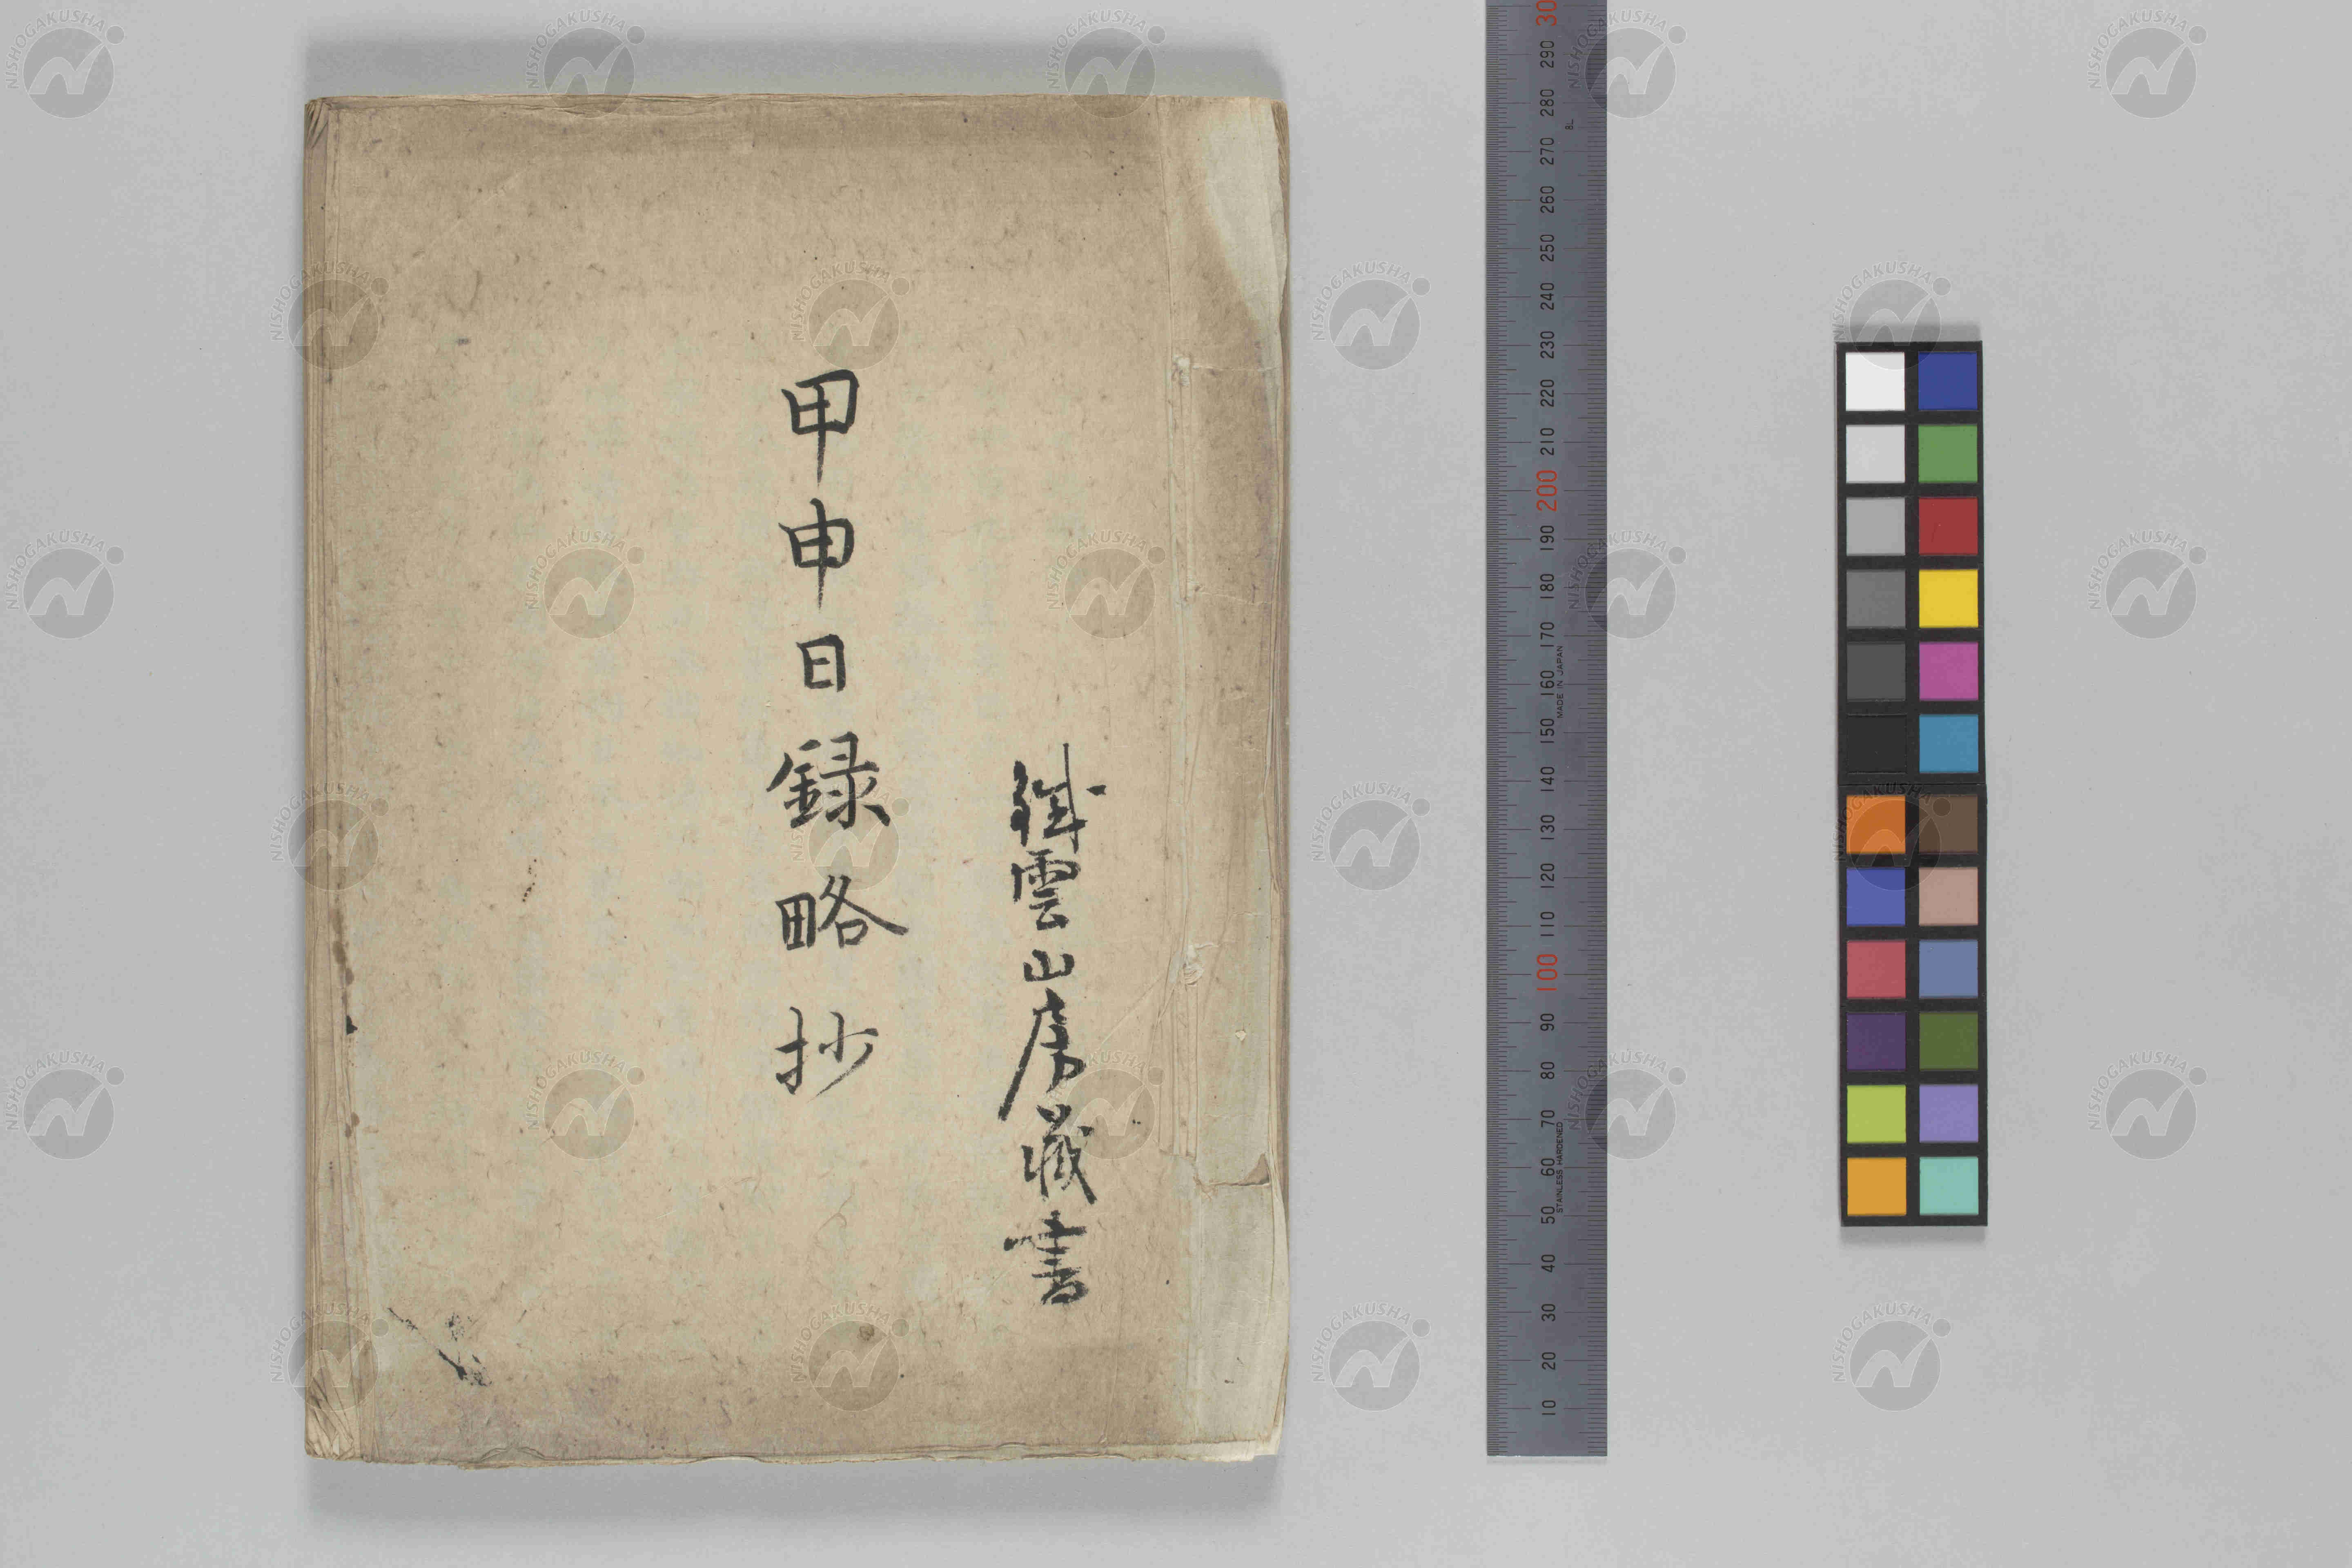 雲山房藏書
甲申日録略抄
10 20 30 40 50 60 70 80 90 100 110 120 130 140 150 160 170 180 190 200 210 220 230 240 250 260 270 280 290 30
STAINLESS HARDENED
MADE IN JAPAN
NISHOGAKUSHA